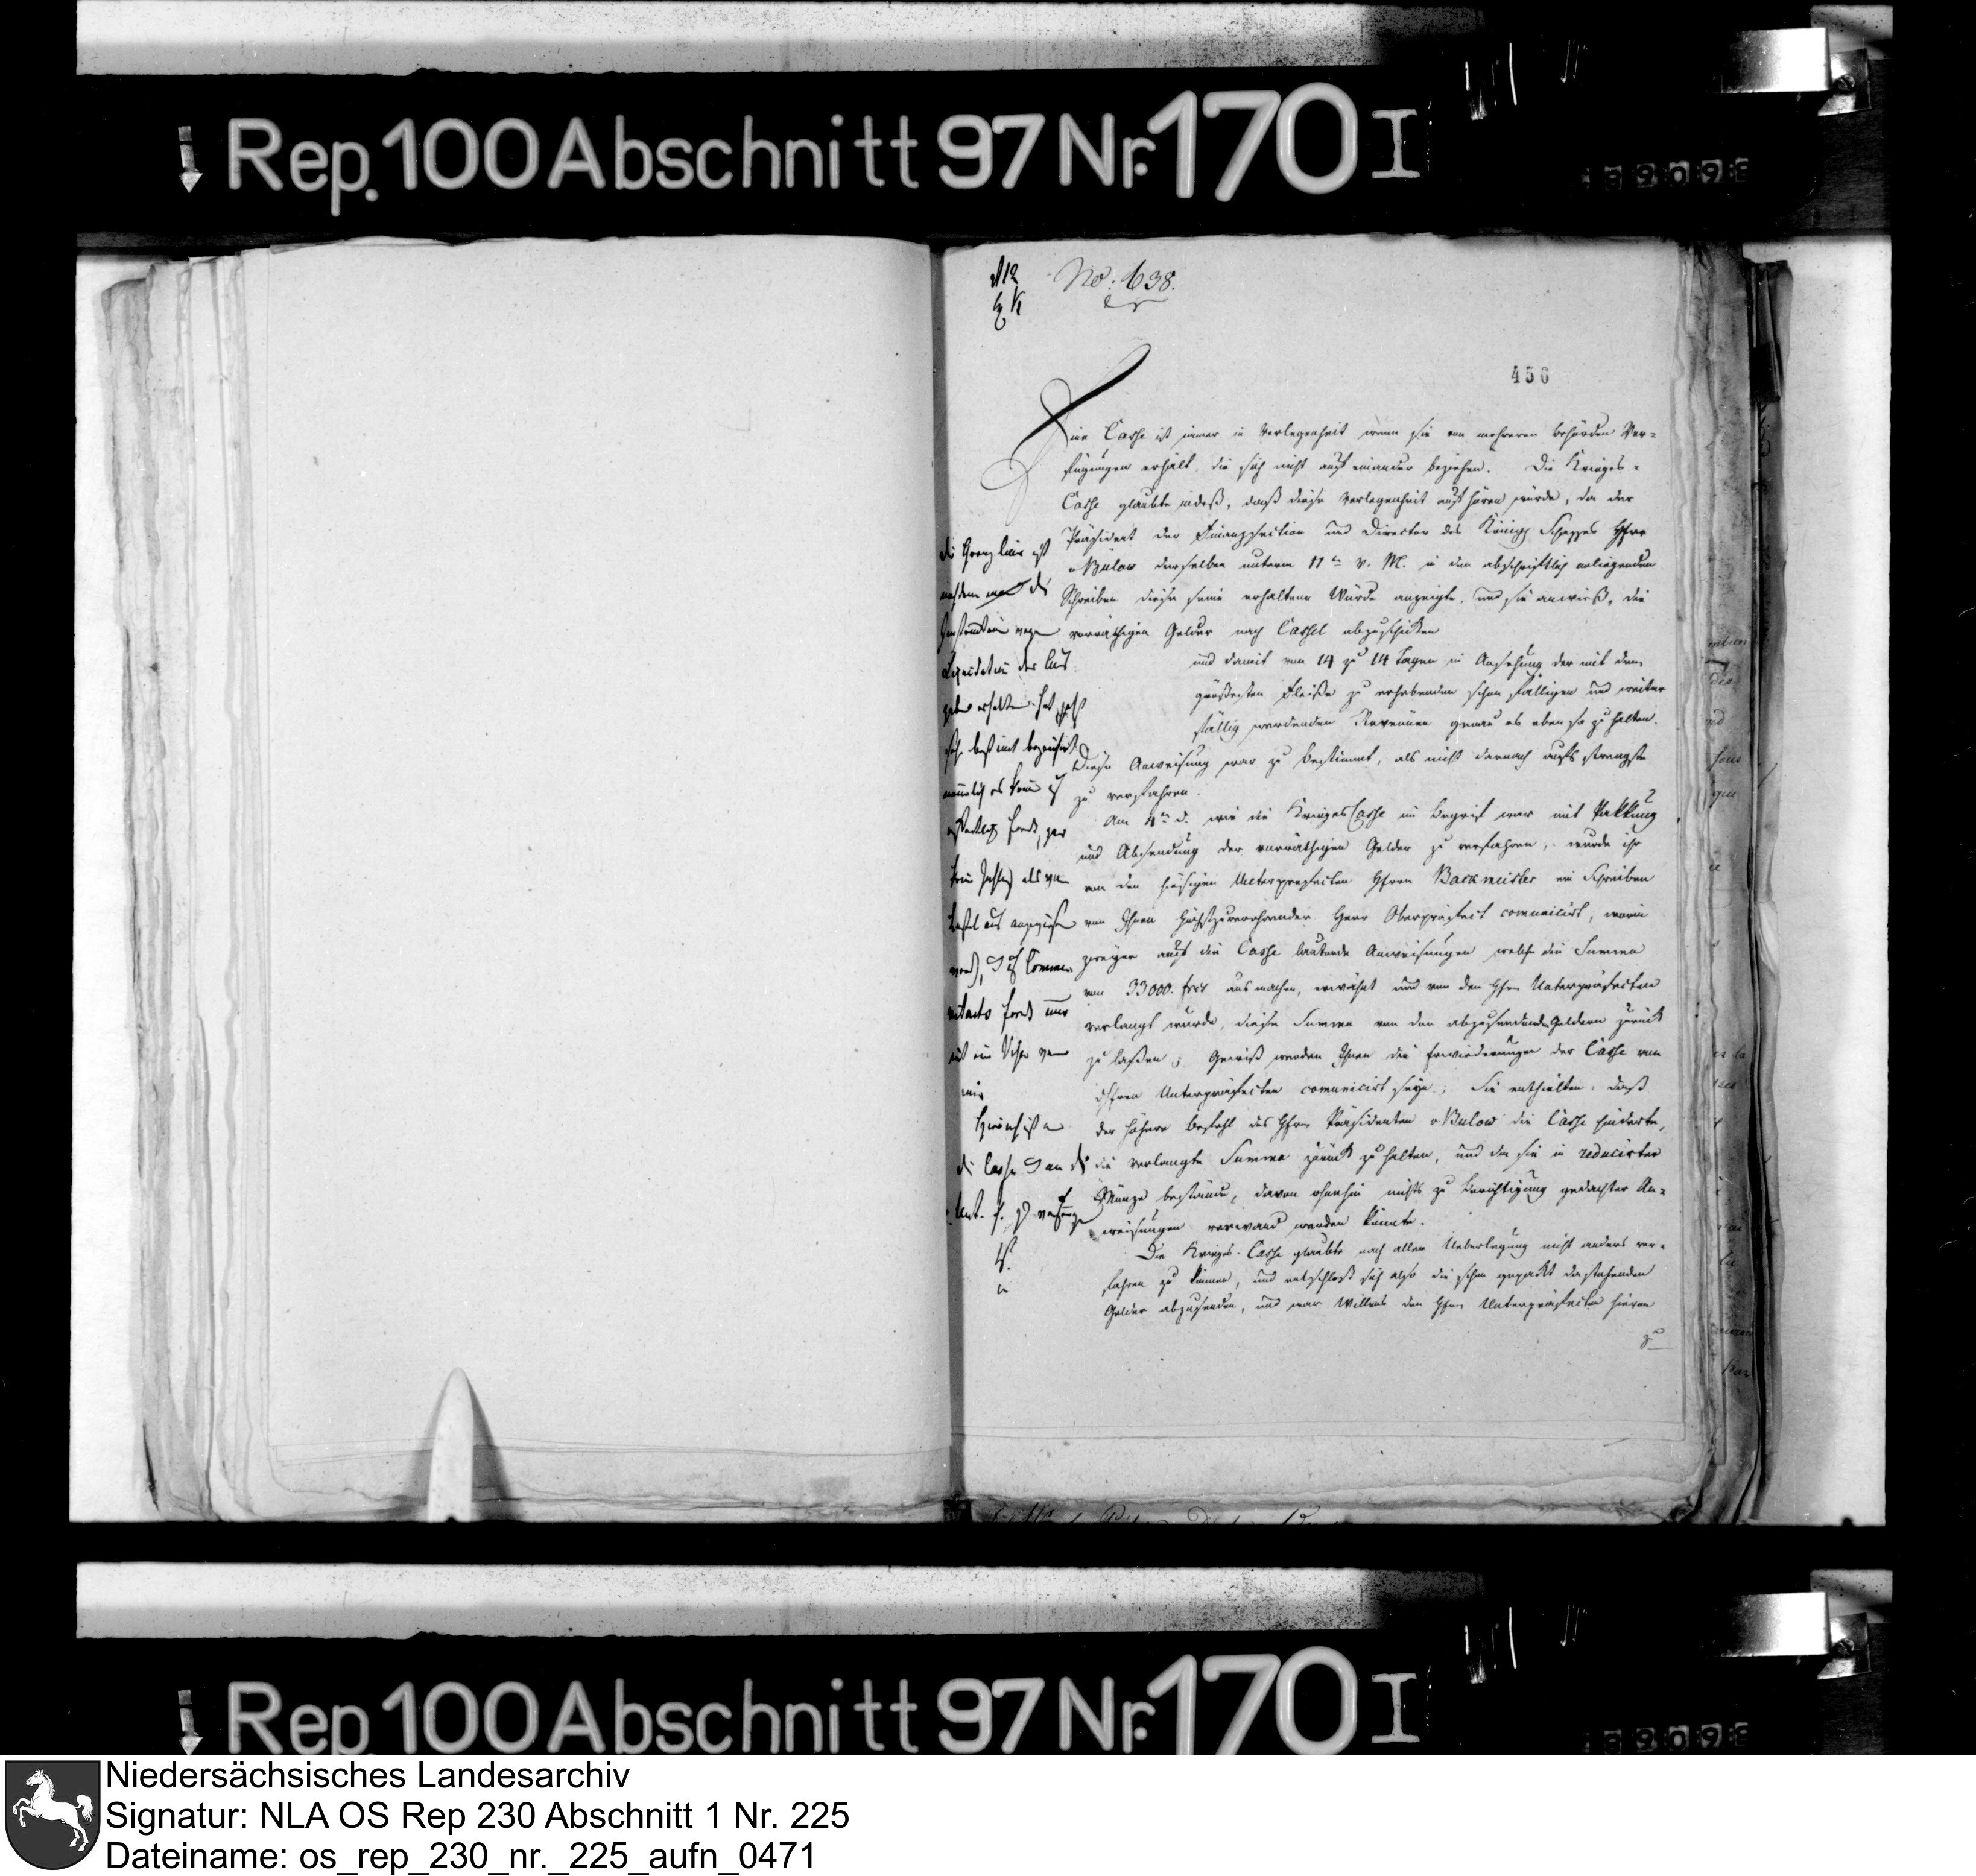 Rep. 100 Abschnitt 97 Nr. 170 I
No: 638.
456
Eine Casse ist immer in Verlegenheit wenn sie von mehreren Behörden Ver-
fügungen erhält, die sich nicht auf einander beziehen. Die Krieges-
Casse glaubte indeß, daß diese Verlegenheit aufhören würde, da der
Präsident der Finanzsection und Director des Königl. Schatzes Herr
v Bülow derselben unterm 11ten v. M. in dem abschriftlich anliegenden
Schreiben diese seine erhaltene Würde anzeigte, und sie anwieß, die
vorräthigen Gelder nach Cassel abzuschicken
und damit von 14 zu 14 Tagen in Ansehung der mit dem
größesten Fleiße zu erhebenden schon fälligen und weiter
fällig werdenden Revenüen genau es eben so zu halten.
Diese Anweisung war zu bestimmt, als nicht darnach aufs strengste
zu verfahren.
Am 4ten d. wie die KriegesCasse im Begrif war mit Pakkung
und Absendung der vorräthigen Gelder zu verfahren, wurde ihr
von dem hiesigen Unterpräfecten Herrn Backmeister ein Schreiben
von Ihnen Höchstzuverehrender Herr Oberpräfect comunicirt, worin
zweyer auf die Casse lautende Anweisungen welche die Summa
von 33000. frcs ausmachen, erwähnt und von dem Herrn Unterpräfecten
verlangt wurde, diese Summa von den abzusendenden Geldern zurück
zu laßen; Gewiß werden Ihnen die Erwiederungen der Casse vom
Herrn Unterpräfecten comunicirt seyn; Sie enthielten: daß
der höhere Befehl des Herrn Präsidenten v Bulow die Casse hinderte,
die verlangte Summa zurück zu halten, und da sie in reducirter
Münze bestände, davon ohnehin nichts zu Berichtigung gedachter An-
weisungen verwand werden könnte.
Die Krieges-Casse glaubte nach aller Ueberlegung nicht anders ver-
fahren zu können, und entschloß sich also die schon gepackt dastehenden
Gelder abzusenden, und war Willens dem Herrn Unterpräfecten hievon
zu
die Grenzlinie ist
nachdem die
Liquidation der
bestimt bezeichnet
Rep. 100 Abschnitt 97 Nr. 170 I
Niedersächsisches Landesarchiv
Signatur: NLA OS Rep 230 Abschnitt 1 Nr. 225
Dateiname: os_rep_230_nr._225_aufn_0471